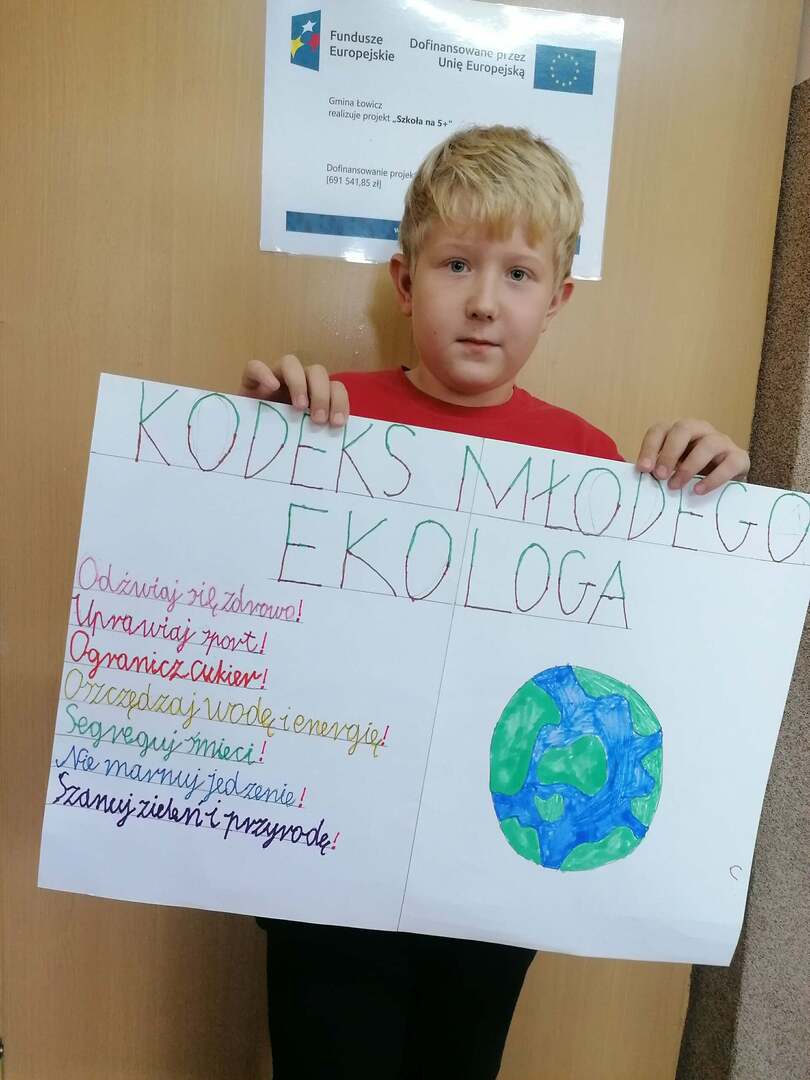 Fundusze
Europejskie
Dofinansowane przez
Unię Europejską
Gmina Łowicz
realizuje projekt „Szkoła na 5+”
Dofinansowanie
[691 541,85 zł]
KODEKS MŁODEGO
EKOLOGA
Odżwiaj się zdrowo!
Uprawiaj sport!
Ogranicz cukier!
Oszczędzaj wodę i energię!
Segreguj śmieci!
Nie marnuj jedzenie!
Szanuj zieleń i przyrodę!